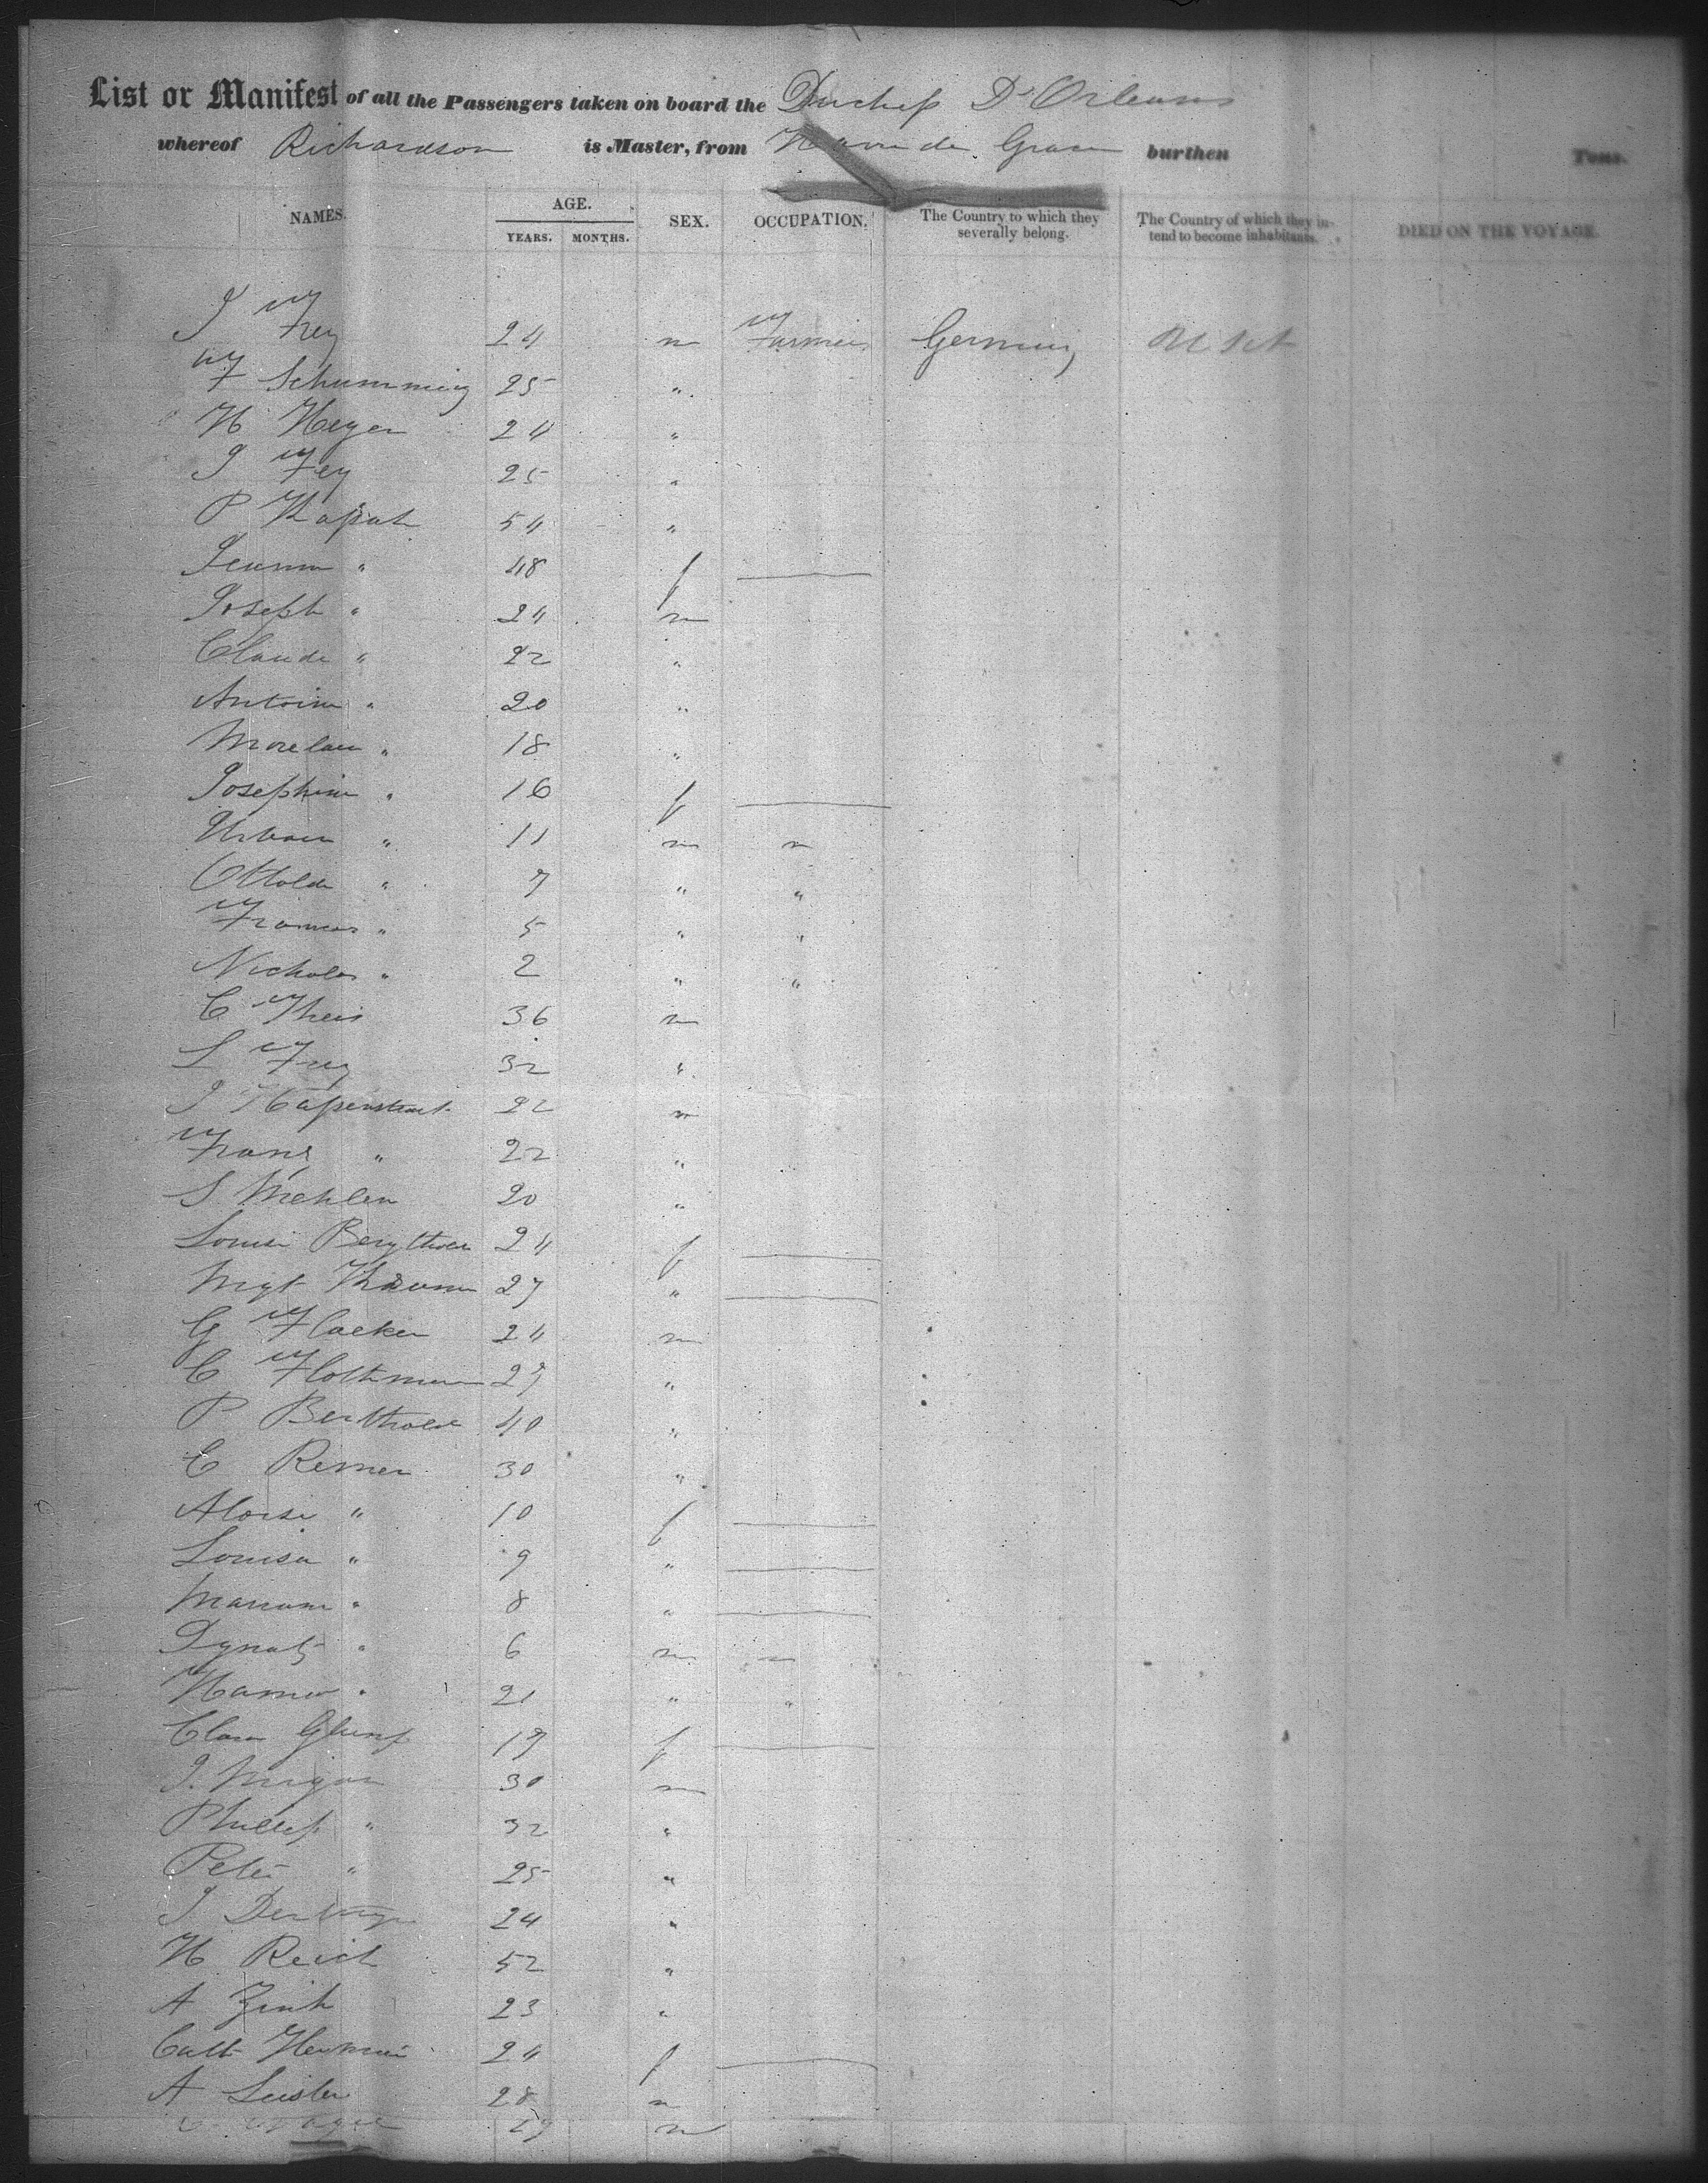 List or Manifest of all the Passengers taken on board the Duchess D'Orleans
whereof Richardson is Master, from Havre de Grace burthen Tons.
NAMES. AGE. YEARS. MONTHS. SEX. OCCUPATION. The Country to which they severally belong. The Country of which they intend to become inhabitants. DIED ON THE VOYAGE.
J Frey 24 m Farmer Germany U St
F Schumming 25 "
H Heyer 24 "
J Fey 25 "
P 54 "
" 48 f —
Joseph " 24 m
Claude " 22 "
Antoine " 20 "
" 18 "
Josephine " 16 f —
Urban " 11 m n
" 7 " "
Francis " 5 " "
Nicholas " 2 " "
C Theis 36 m
L Frey 32 "
J 22 m
Franz " 22 "
S Mehlen 20 "
Louise 24 f —
Mgt 27 " —
G Flocker 24 m
C Flothman 27 "
P Berthold 40 "
C Remer 30 "
Aloise " 10 f —
Louisa " 9 " —
Mariann " 8 " —
Ignatz " 6 m n
" 21 " "
Clara 19 f —
J. 30 m
Phillip " 32 "
Peter " 25 "
J 24 "
H Reich 52 "
A Zink 23 "
Cath 24 f —
A Leisler 28 m
27 m